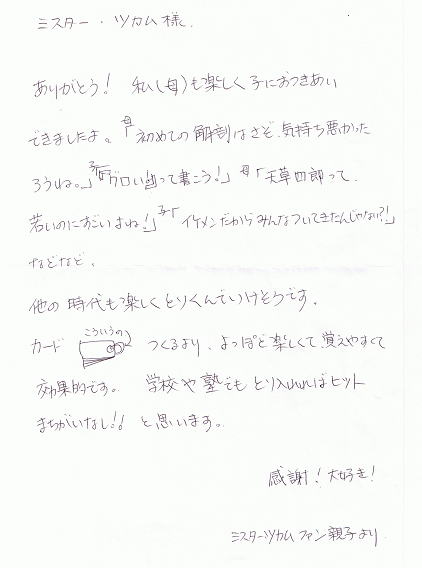 ミスター・ツカム様
ありがとう! 私(母)も楽しく子におつきあい
できましたよ。母「初めての解剖はさぞ、気持ち悪かった
ろうね。」子「グロい図って書こう!」母「天草四郎って
若いのにすごいよね!」子「イケメンだからみんなついてきたんじゃない?!」
などなど、
他の時代も楽しくとりくんでいけそうです。
カード こういうの つくるより、よっぽど楽しくて覚えやすくて
効果的です。 学校や塾でもとり入れればヒット
まちがいなし!! と思います。
感謝!大好き!
ミスターツカムファン親子より